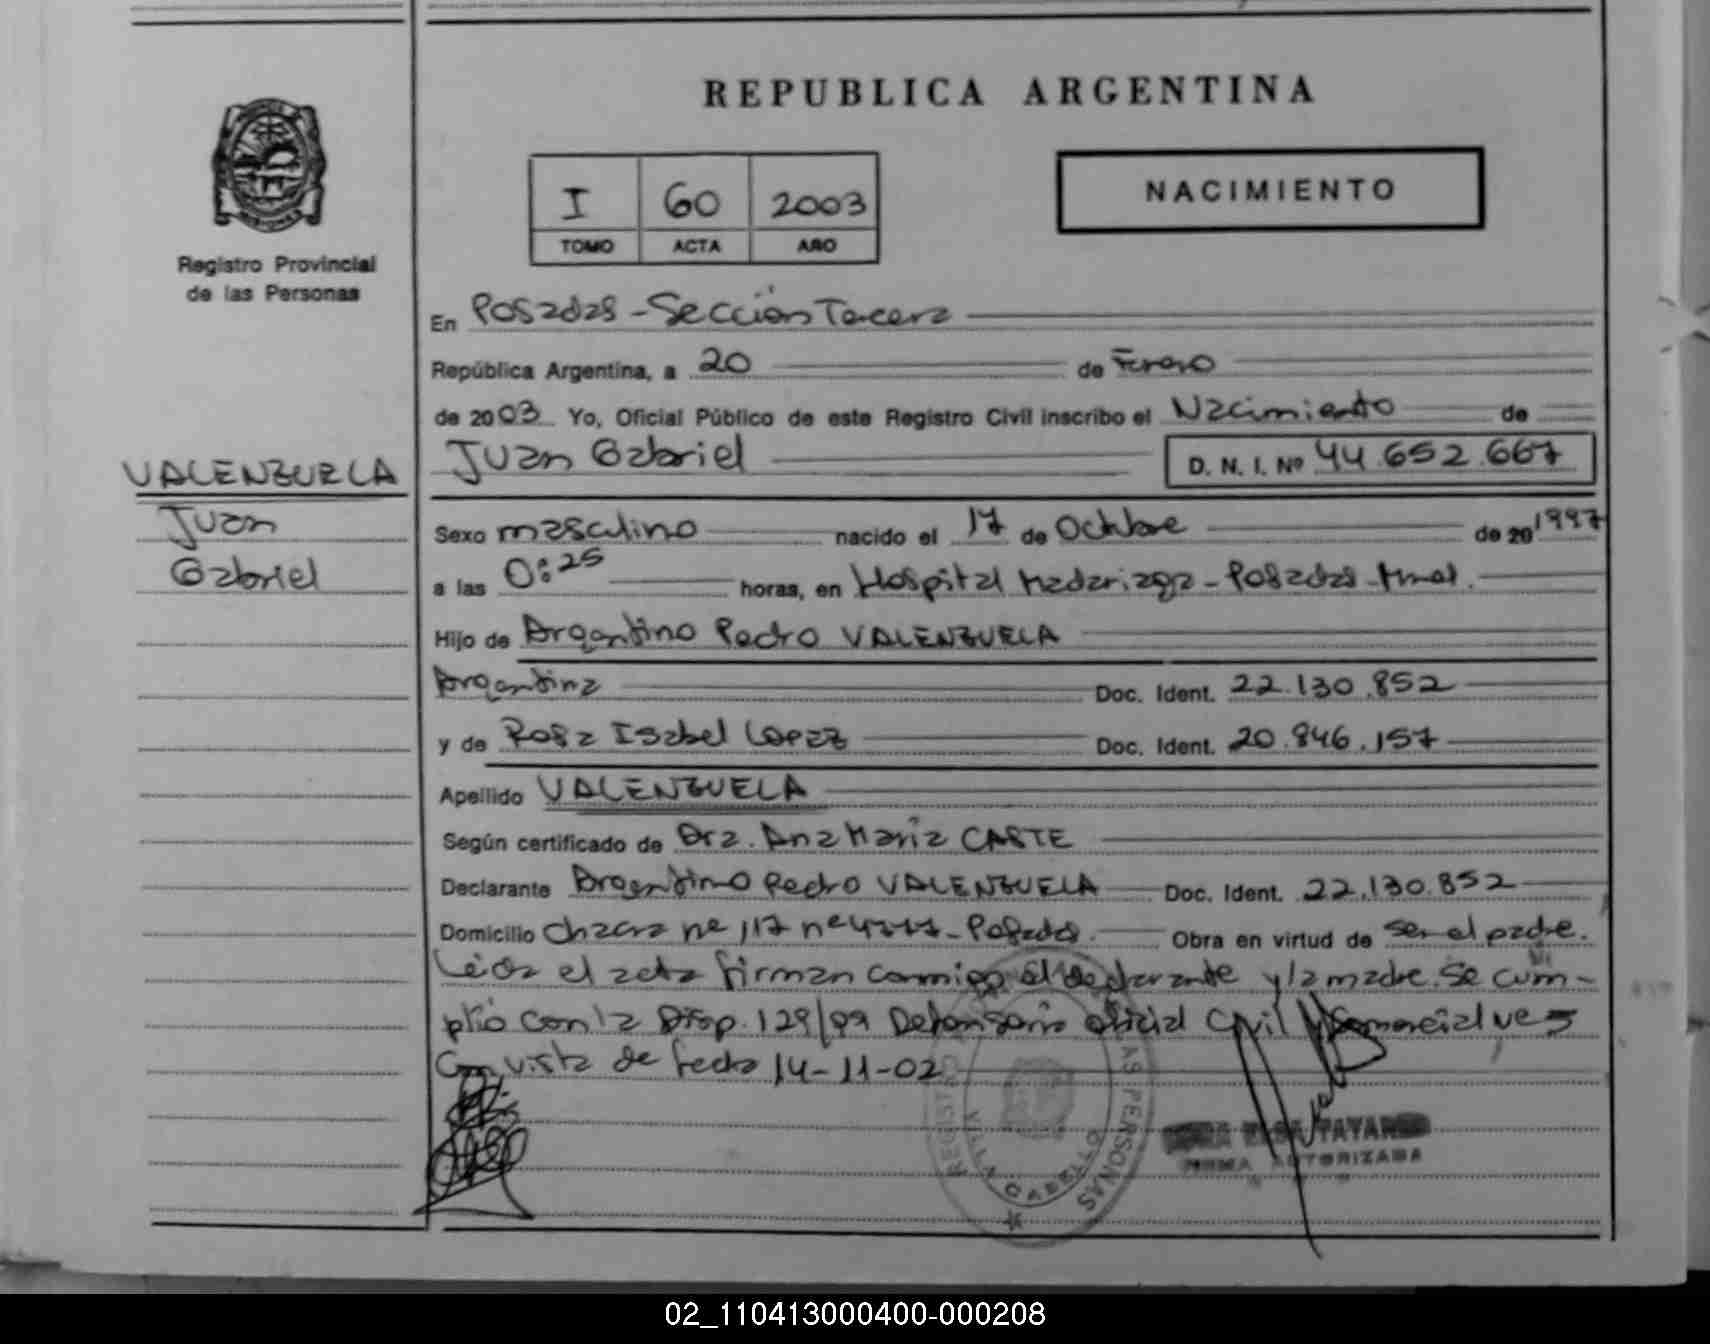 REPUBLICA ARGENTINA
I 60 2003
TOMO ACTA AÑO
NACIMIENTO
Registro Provincial
de las Personas
En Posadas - Sección Tercera
República Argentina, a 20 de Enero
de 2003 Yo, Oficial Público de este Registro Civil inscribo el Nacimiento de
Juan Gabriel D. N. I. Nº 44.652.667
VALENZUELA
Juan
Gabriel
Sexo masculino nacido el 17 de Octubre de 20 1997
a las 0:25 horas, en Hospital Madariaga - Posadas -
Hijo de Argentino Pedro VALENZUELA
Argentina Doc. Ident. 22.130.852
y de Rosa Isabel Lopez Doc. Ident. 20.846.157
Apellido VALENZUELA
Según certificado de Dra. Ana Maria CASTE
Declarante Argentino Pedro VALENZUELA Doc. Ident. 22.130.852
Domicilio Chacra nº 117 nº - Posadas. Obra en virtud de ser el padre.
Leida el acta firman conmigo el declarante y la madre. Se cum-
plió con la Disp. 129/99 Defensoria oficial Civil y Comercial nº 5
Con vista de fecha 14-11-02
REGISTRO LAS PERSONAS
VILLA CABELLO
TAYAR
FIRMA AUTORIZADA
02_110413000400-000208